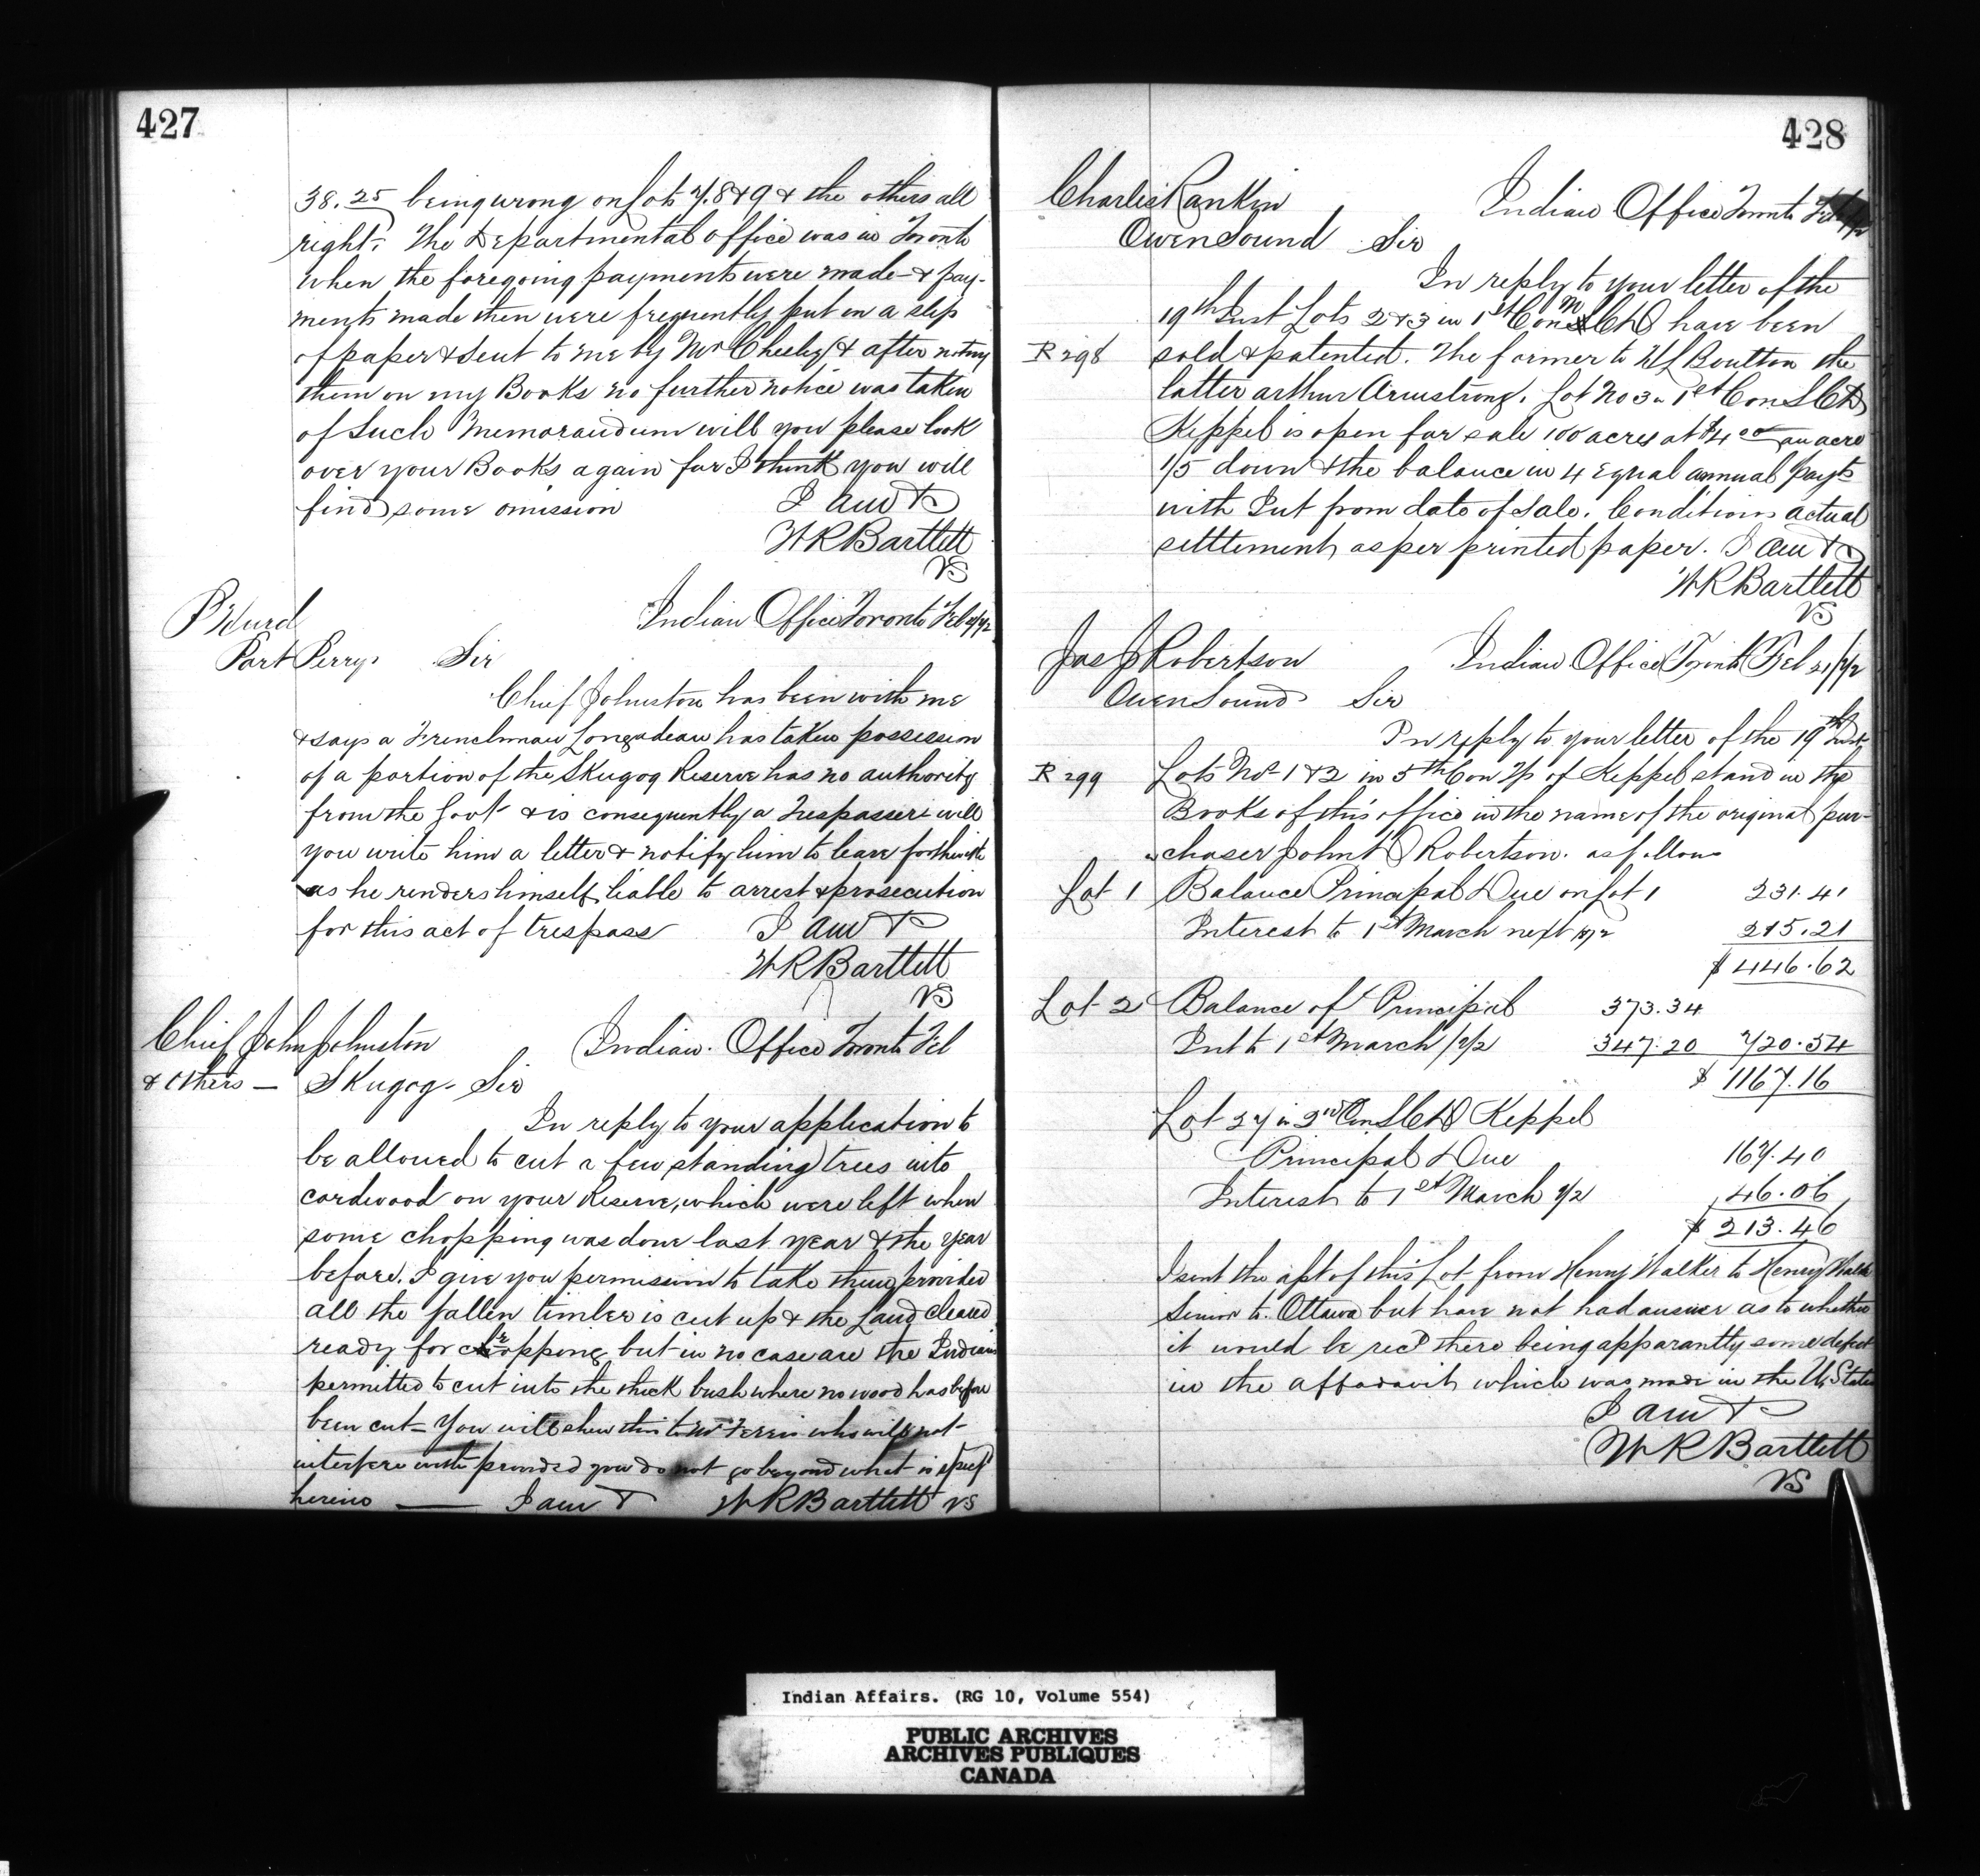 427
38.25 being wrong on Lots 7.8 & 9 & the others all
right. The Departmental office was in Toronto
when the foregoing payments were made & pay-
ments made then were frequently put on a slip
of paper & sent to me by Mr & after noting
them on my Books no further notice was taken
of such Memorandum will you please look
over your Books again for I think you will
find some omission I am &
W R Bartlett
VS
P Hurd Indian Office Toronto Feb
Port Perry. Sir
Chief Johnston has been with me
& says a Frenchman has taken possession
of a portion of the Skugog Reserve has no authority
from the Govt & is consequently a Trespasser will
you write him a letter & notify him to leave forthwith
as he renders himself liable to arrest & prosecution
for this act of trespass I am &
W R Bartlett
VS
Chief John Johnston Indian Office Toronto Feb
& Others — Skugog. Sir
In reply to your application to
be allowed to cut a few standing trees into
cordwood on your Reserve, which were left when
some chopping was done last year & the year
before. I give you permission to take them provided
all the fallen timber is cut up & the Land cleared
ready for cropping but in no case are the Indians
permitted to cut into the thick bush where no wood has before
been cut — You will shew this to Mr who will not
interfere with provided you do not go beyond what is
herein — I am & W R Bartlett VS
428
Charles Rankin Indian Office Toronto
Owen Sound Sir
In reply to your letter of the
19th Inst Lots 2 & 3 in 1st Con have been
R 298 sold & patented. The former to Boulton the
latter Arthur Armstrong. Lot No 3 in 1st Con S C D
Keppel is open for sale 100 acres at $4 00 an acre
1/5 down & the balance in 4 Equal annual payts
with Int from date of sale. Conditions actual
settlement, as per printed paper. I am &
W R Bartlett
VS
Jas J Robertson Indian Office Toronto Feb 21/72
Owen Sound Sir
In reply to your letter of the 19th Inst
R 299 Lots Nos 1 & 2 in 5th Con Tp of Keppel stand in the
Books of this office in the name of the original pur-
chaser John Robertson. as follows
Lot 1 Balance Principal Due on Lot 1 231.41
Interest to 1st March next 1872 215.21
$ 446.62
Lot 2 Balance of Principal 373.34
Int to 1st March /72 347.20 720.54
$ 1167.16
Lot 27 in 2nd Con S C D Keppel
Principal Due 167.40
Interest to 1st March 72 46.06
$ 213.46
I sent the of this Lot from Henry Walker to Henry Walker
Senior to Ottawa but have not had answer as to whether
it would be recd there being apparantly some defect
in the affadavit which was made in the U. States
I am &
W R Bartlett
VS
Indian Affairs. (RG 10, Volume 554)
PUBLIC ARCHIVES
ARCHIVES PUBLIQUES
CANADA